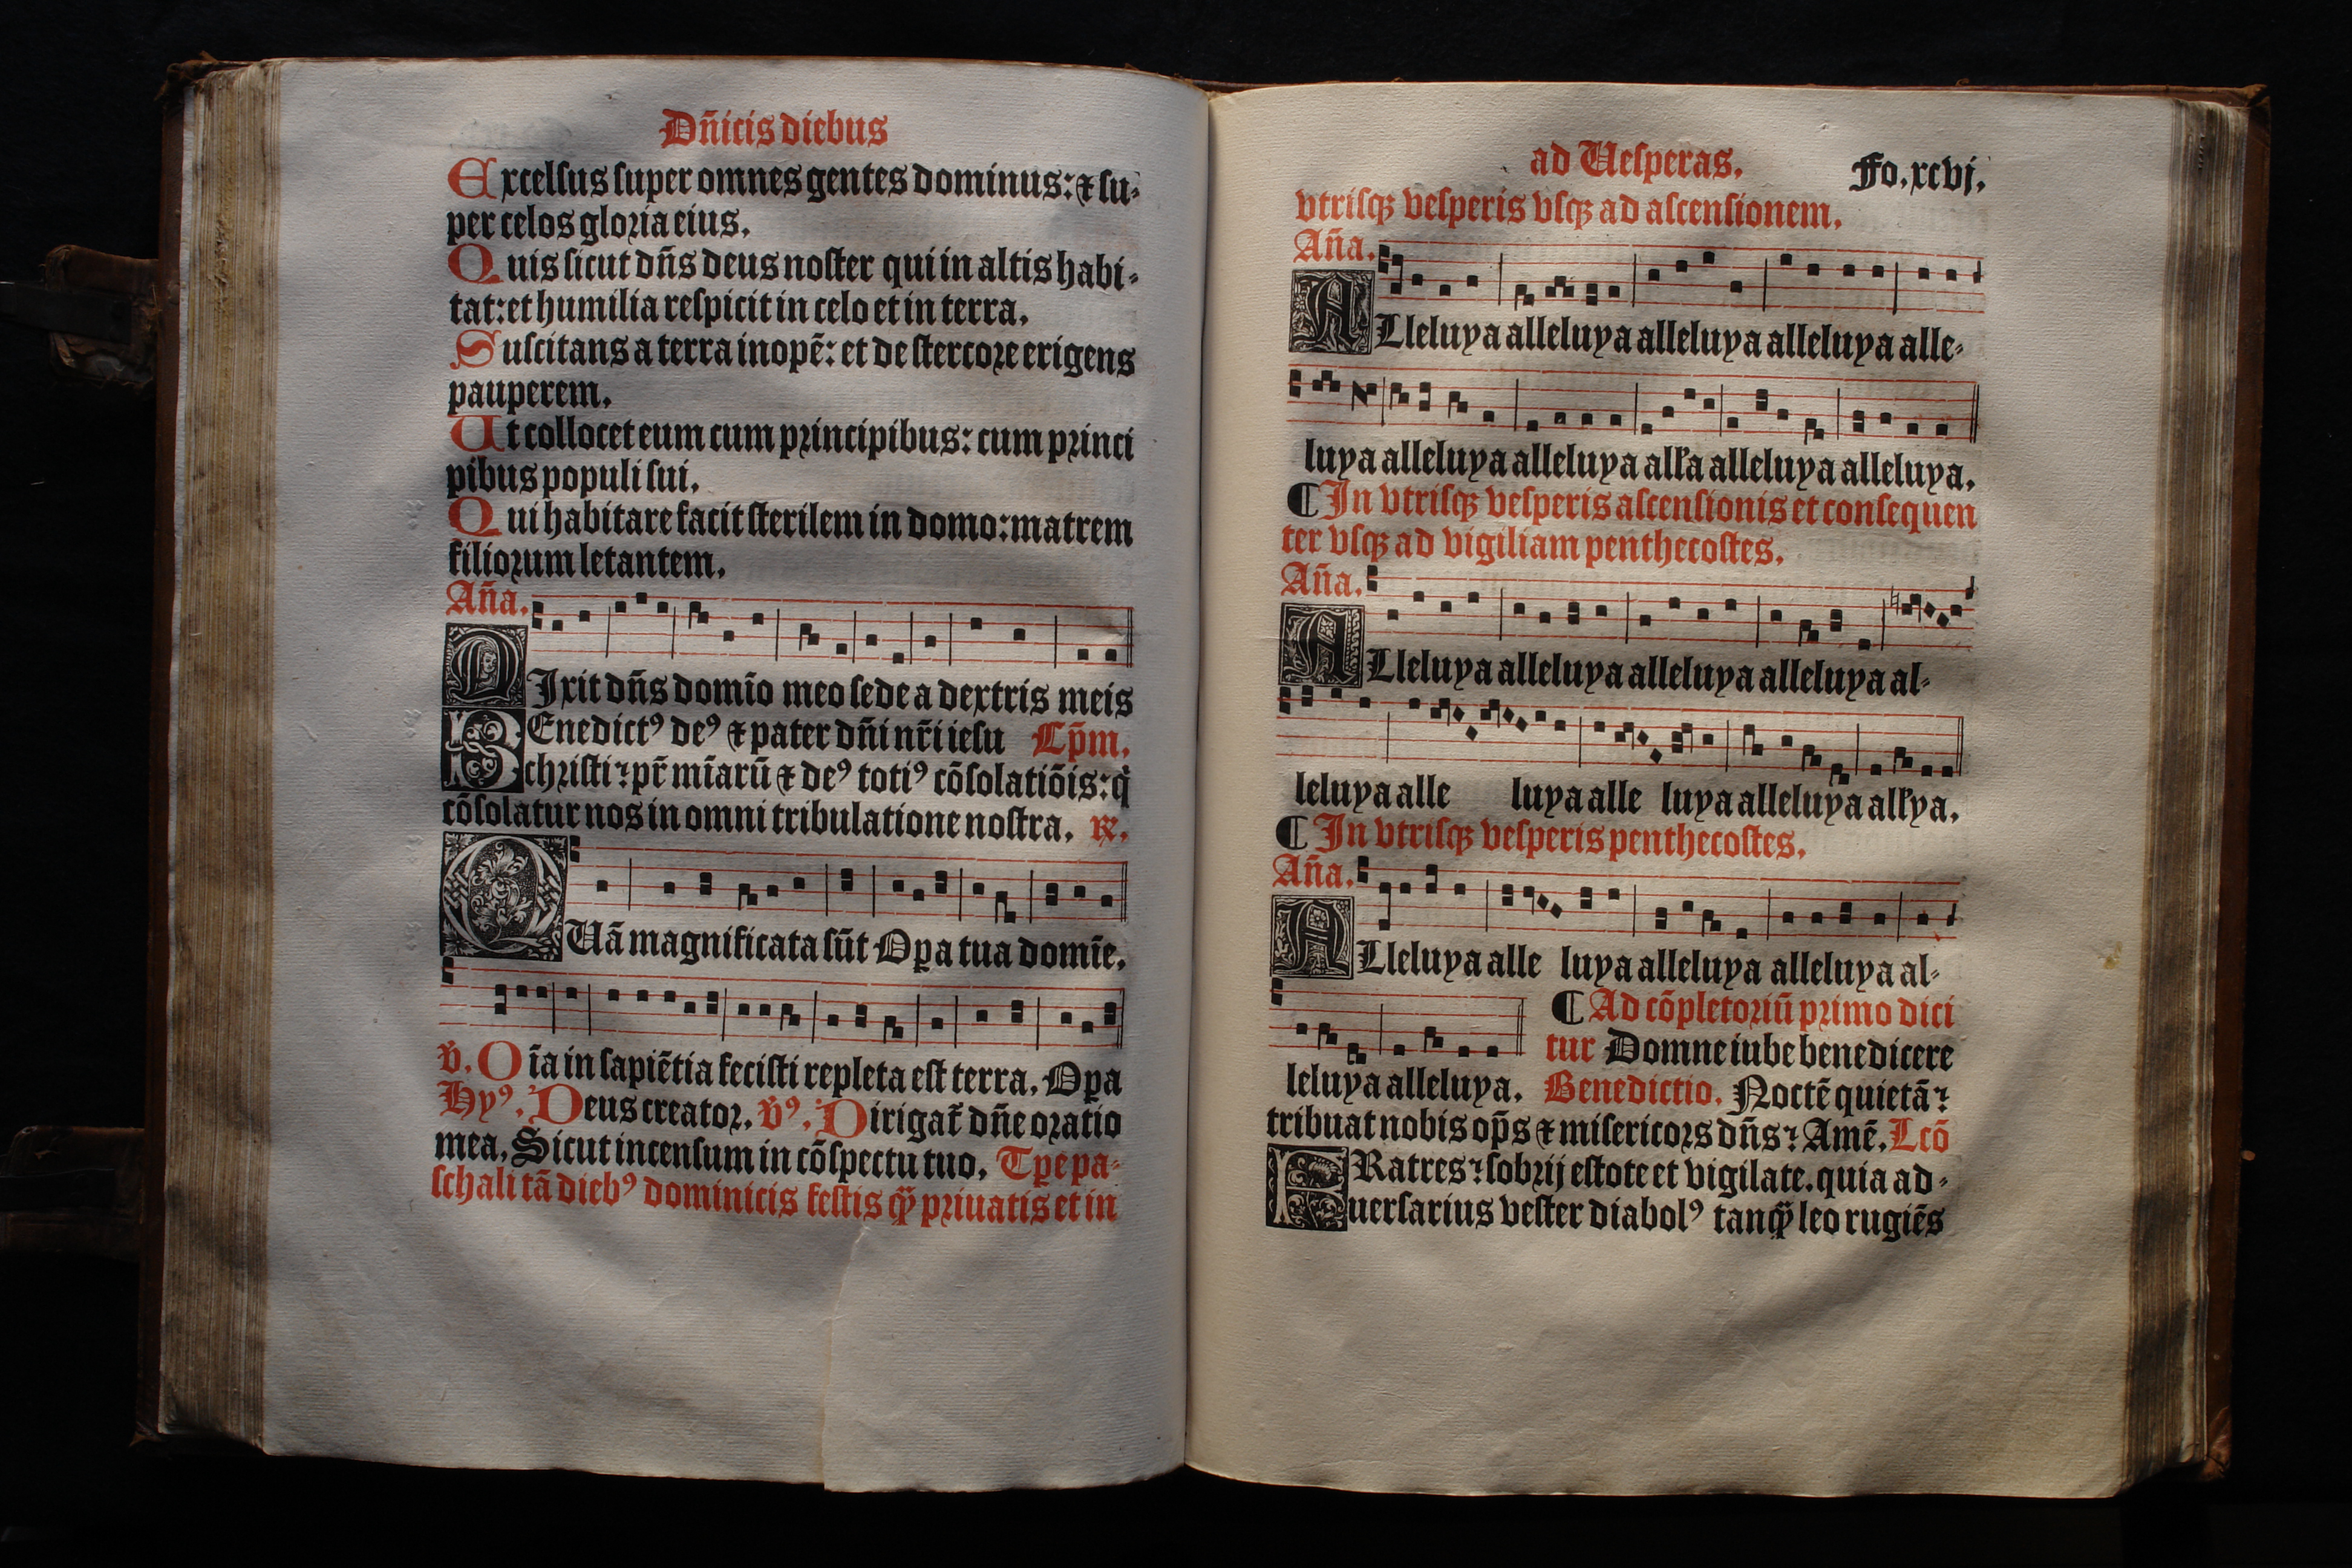 Dn̄icis diebus
Excelſus ſuper omnes gentes dominus: ⁊ ſu⸗
per celos gloꝛia eius.
Quis ſicut dn̄s deus noſter qui in altis habi⸗
tat: et humilia reſpicit in celo et in terra.
Suſcitans a terra inopē: et de ſtercoꝛe erigens
pauperem.
Ut collocet eum cum pꝛincipibus: cum pꝛinci
pibus populi ſui.
Qui habitare facit ſterilem in domo: matrem
filioꝛum letantem.
An̄a.
DIxit dn̄s domīo meo ſede a dextris meis
BEnedictꝰ deꝰ ⁊ pater dn̄i nr̄i ieſu Cp̄m.
chꝛiſti: pr̄ mīarū ⁊ deꝰ totiꝰ cōſolatiōis: q̇
cōſolatur nos in omni tribulatione noſtra. ℞.
QUā magnificata ſūt Opa tua domīe.
v̄. Oīa in ſapiētia feciſti repleta eſt terra. Opa
Hyꝰ. Deus creatoꝛ. v̄ꝰ. Dirigat̄ dn̄e oꝛatio
mea. Sicut incenſum in cōſpectu tuo. Tꝑe pa⸗
ſchali tā diebꝰ dominicis feſtis qꝫ̄ pꝛiuatis et in
ad Ueſperas. Fo. xcvj.
vtriſqꝫ veſperis vſqꝫ ad aſcenſionem.
An̄a.
ALleluya alleluya alleluya alleluya alle⸗
luya alleluya alleluya all'a alleluya alleluya.
¶ In vtriſqꝫ veſperis aſcenſionis et conſequen
ter vſqꝫ ad vigiliam penthecoſtes.
An̄a.
ALleluya alleluya alleluya alleluya al⸗
leluya alle luya alle luya alleluya all'ya.
¶ In vtriſqꝫ veſperis penthecoſtes.
An̄a.
ALleluya alle luya alleluya alleluya al⸗
¶ Ad cōpletoꝛiū pꝛimo dici
tur Domne iube benedicere
leluya alleluya. Benedictio. Noctē quietā:
tribuat nobis op̄s ⁊ miſericoꝛs dn̄s: Amē. Lcō
FRatres: ſobꝛij eſtote et vigilate. quia ad⸗
uerſarius veſter diabolꝰ tanqꝫ̄ leo rugiēs